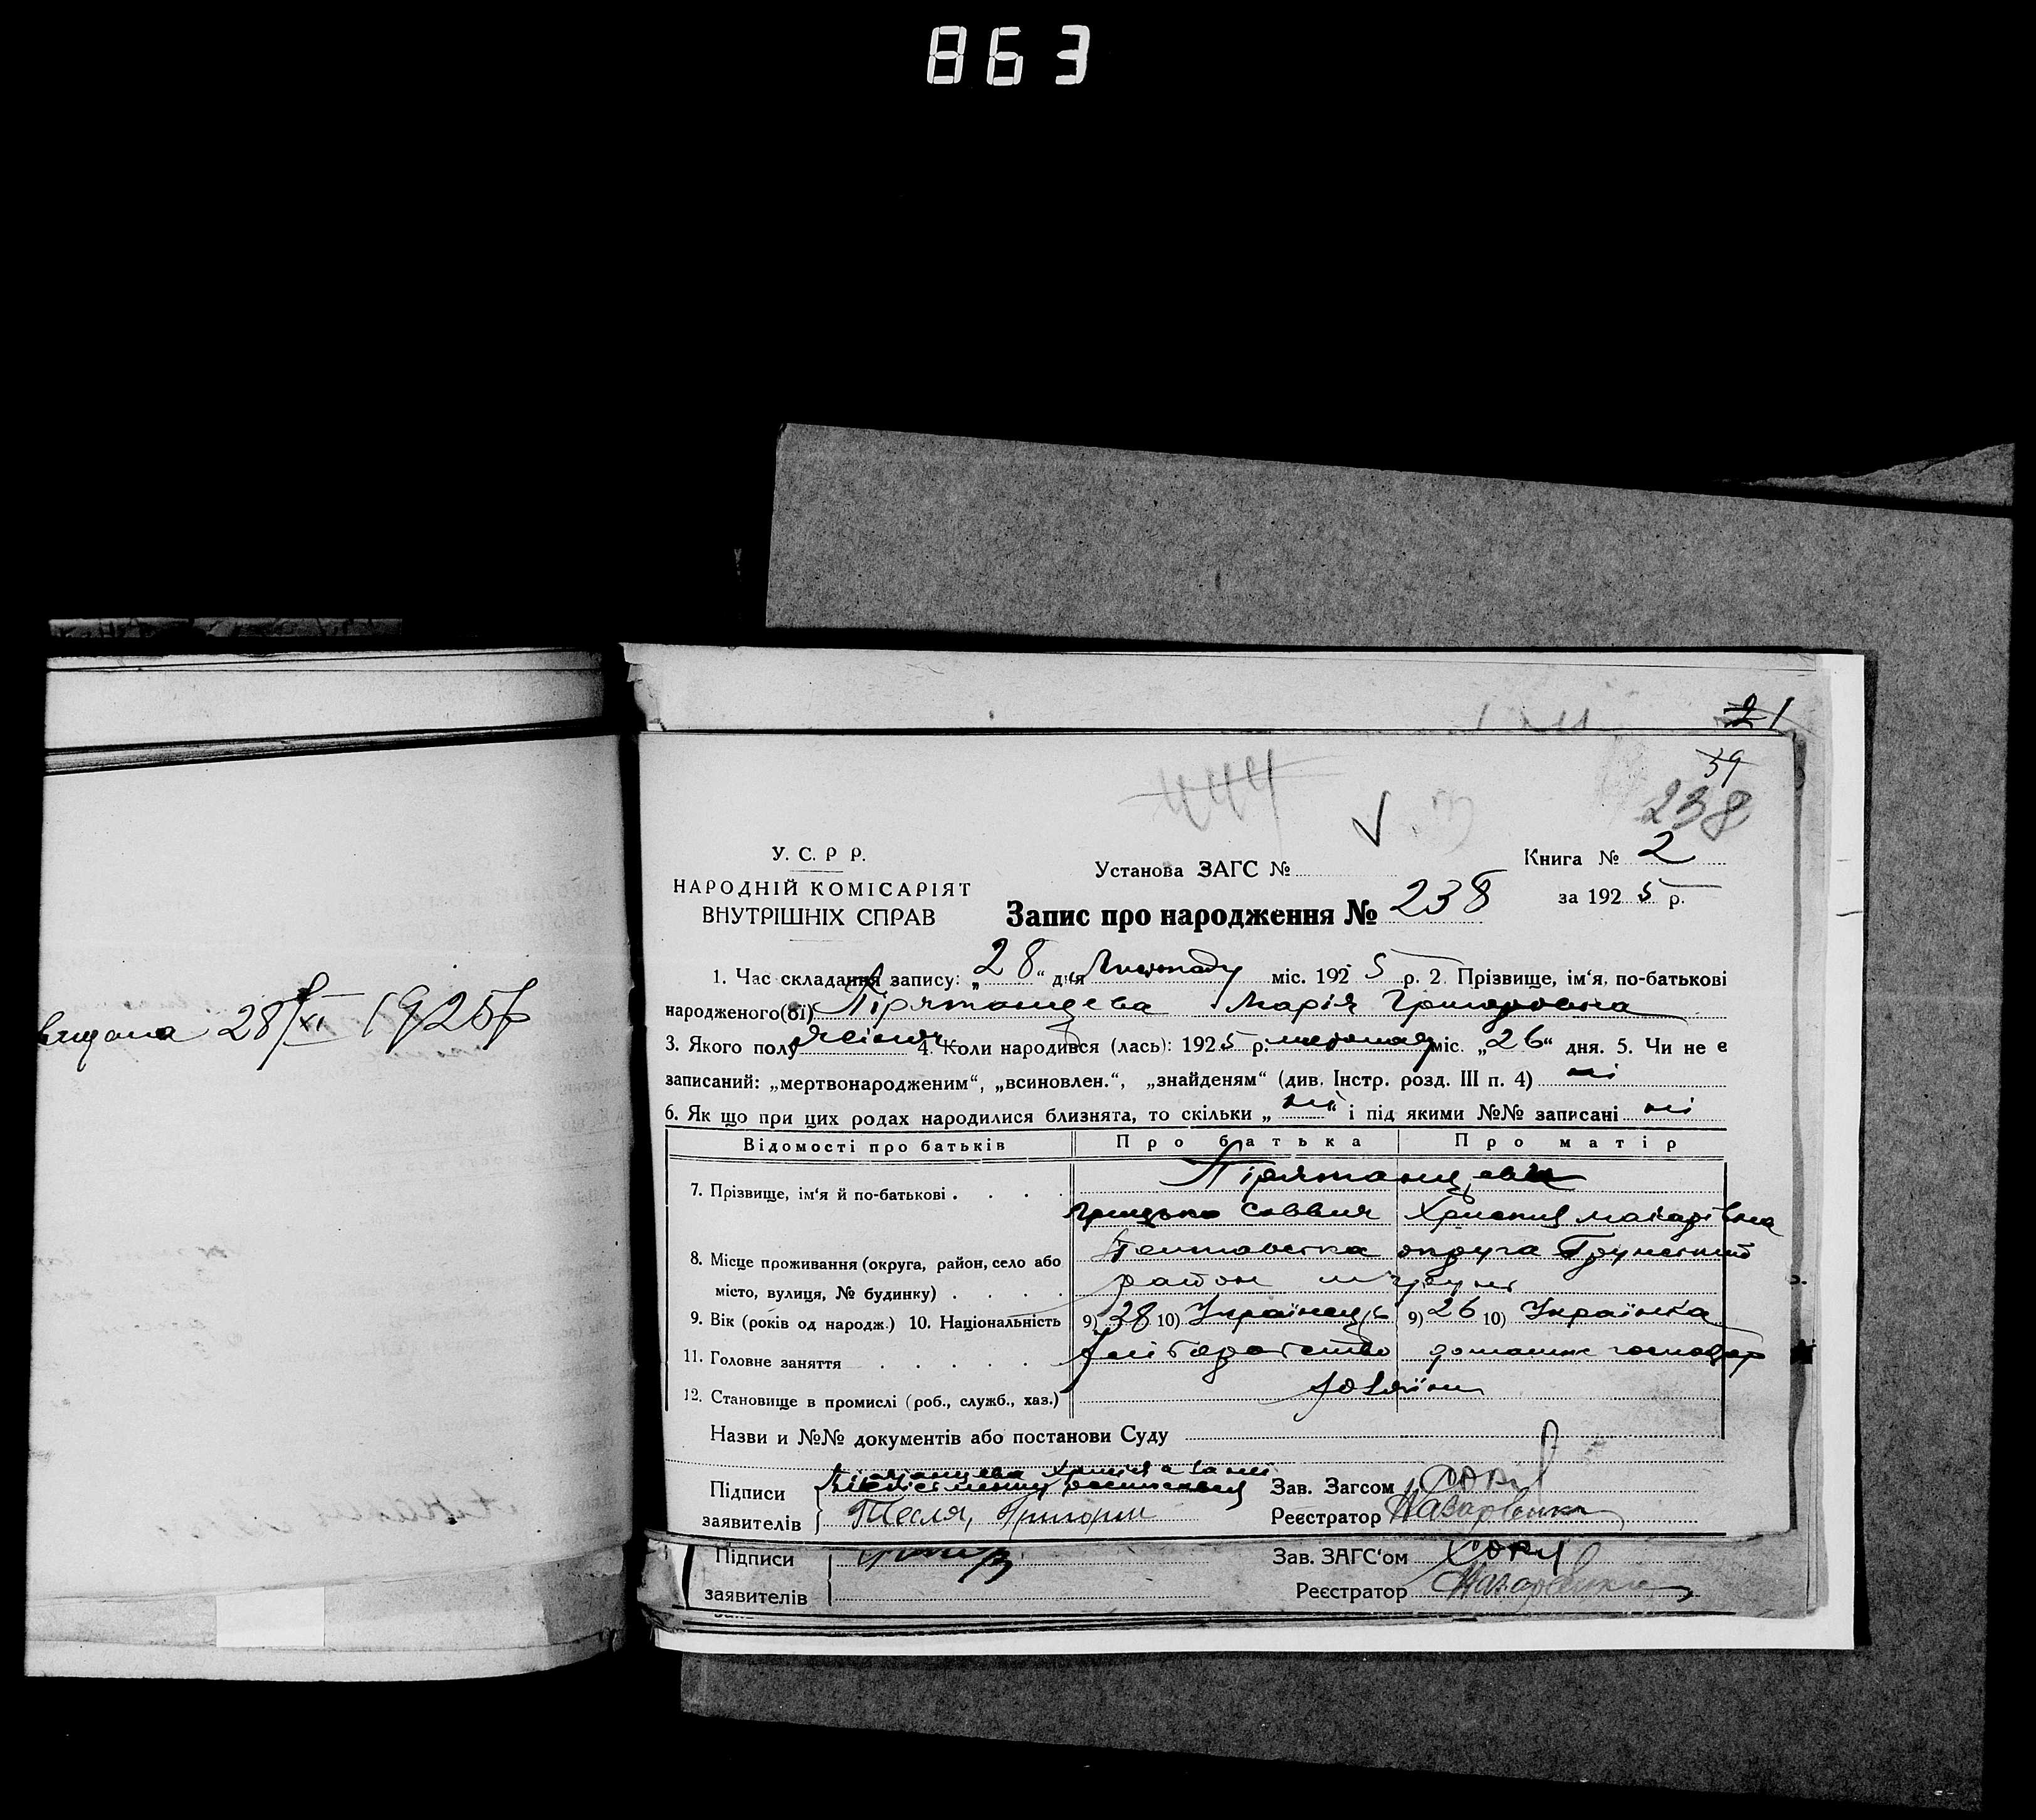 863
видана 28/XI 1925 р
21
39
444
238
У. С. Р Р.
НАРОДНІЙ КОМІСАРІЯТ
ВНУТРІШНІХ СПРАВ
Установа ЗАГС №
Книга № 2
за 1925 р.
Запис про народження № 238
1. Час складання запису: „28“ дня Листопаду міс. 1925 р. 2. Прізвище, ім'я, по-батькові
народженого(ої) Пірятанцева Марія Григоровна
3. Якого полу жіноч 4. Коли народився (лась): 1925 р. листопад міс. „26“ дня. 5. Чи не є
записаний: „мертвонародженим“, „всиновлен.“, „знайденям“ (див. Інстр. розд. III п. 4) ні
6. Як що при цих родах народилися близнята, то скільки „ні“ і під якими №№ записані ні
Відомості про батьків Про батька Про матір
7. Прізвище, ім'я й по-батькові . . . . Пірятанцеви
Грицько Саввич Христия Макарівна
8. Місце проживання (округа, район, село або Полтавська округа Грунський
місто, вулиця, № будинку) . . . . район
9. Вік (років од народж.) 10. Національність 9) 28 10) Українець 9) 26 10) Українка
11. Головне заняття . . . . . . Хліборобство домашнє господар
12. Становище в промислі (роб., служб., хаз.) Хазяїни
Назви и №№ документів або постанови Суду
Підписи
заявителів Тесля, Григорий
Зав. Загсом
Реєстратор Назаренко
Підписи
заявителів
Зав. ЗАГС'ом
Реєстратор Назаренко